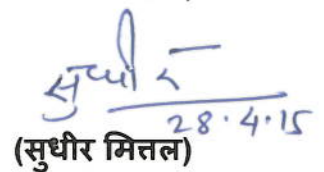 सुधीर
28.4.15
(सुधीर मित्तल)